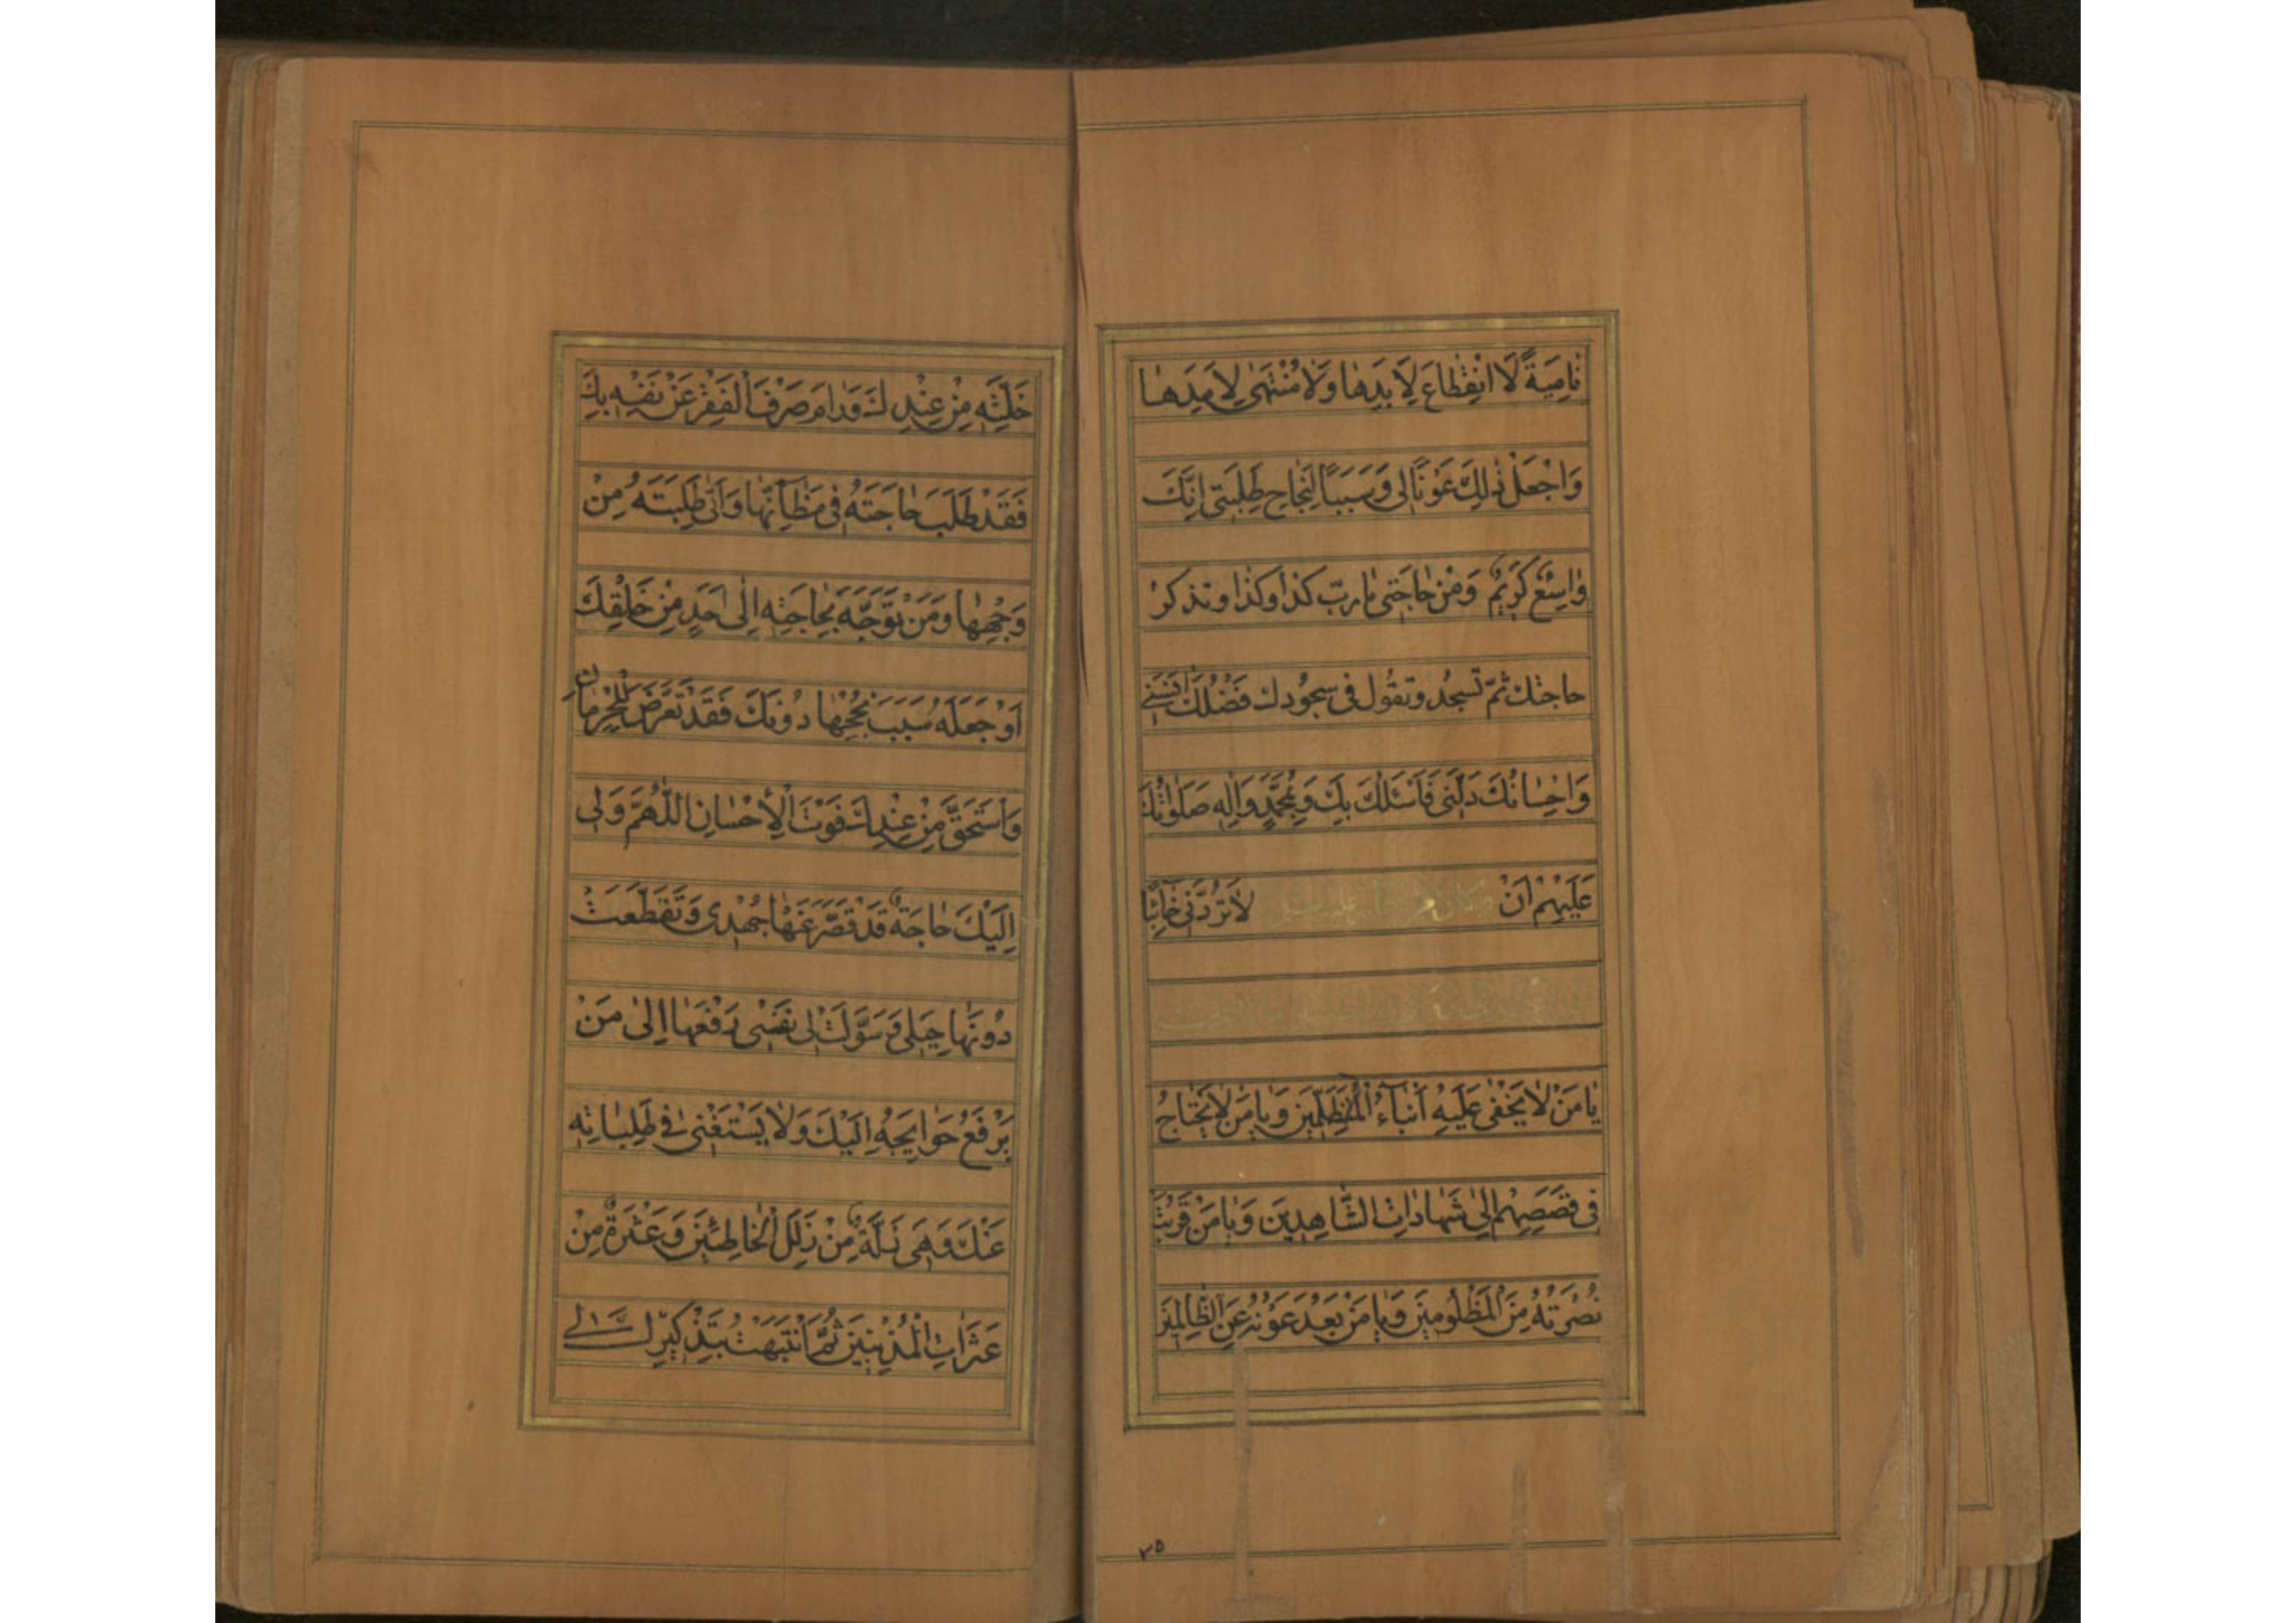 نٰامِيَةً لَا انْقِطٰاعَ لِاَبَدِهٰا وَلٰا مُنْتَهىٰ لِاَمَدِهٰا
وَاجْعَلْ ذٰلِكَ عَوْنًا لي وَسَبَبًا لِنَجٰاحِ طَلِبَتي اِنَّكَ
وٰاسِعٌ كَرِيْمٌ وَمِنْ حٰاجَتي يٰا ربّ كذا وكذا وتذكرْ
حاجتك ثمّ تسجُد وتقُول في سجُودك فَضْلُكَ اٰنَسَني
وَاِحْسٰانُكَ دَلَّنَي فَاَسْئَلُكَ بِكَ وَبِمُحَمَّدٍ وَاٰلِهِ صَلَوٰاتُكَ
عَلَيْهِمْ اَنْ وكان من دعائه عليه السلام لٰا تَرُدَّنَي خٰآئِبًا
يٰا مَنْ لٰا يَخْفىٰ عَلَيْهِ اَنْبٰآءُ الْمُتَظَلِّمِينَ وَيٰا مَنْ لٰا يَحْتٰاجُ
في قَصَصِهِمْ اِلىٰ شَهٰادٰاتِ الشّٰاهِدِينَ وَيٰا مَنْ قَرُبَتْ
نُصْرَتُهُ مِنَ الْمَظْلُومِينَ وَيٰا مَنْ بَعُدَ عَوْنُهُ عَنِ الظّٰالِمِينَ
خَلَّتِهِ مِنْ عِنْدِكَ وَرٰامَ صَرْفَ الْفَقْرِ عَنْ نَفْسِهِ بِكَ
فَقَدْ طَلَبَ حٰاجَتَهُ في مَظٰآنِّهٰا وَاَتىٰ طَلِبَتَهُ مِنْ
وَجْهِهٰا وَمَنْ تَوَجَّهَ بِحٰاجَتِهِ اِلىٰ اَحَدٍ مِنْ خَلْقِكَ
اَوْ جَعَلَهُ سَبَبَ نُجْحِهٰا دُونَكَ فَقَدْ تَعَرَّضَ لِلْحِرْمٰانِ
وَاسْتَحَقَّ مِنْ عِنْدِكَ فَوْتَ الْاِحْسٰانِ اللّٰهُمَّ وَلي
اِلَيْكَ حٰاجَةٌ قَدْ قَصَّرَ عَنْهٰا جُهْدي وَتَقَطَّعَتْ
دُونَهٰا حِيَلي وَسَوَّلَتْ لي نَفْسي رَفْعَهٰا اِلىٰ مَنْ
يَرْفَعُ حَوٰائِجَهُ اِلَيْكَ وَلٰا يَسْتَغْني في طَلِبٰاتِهِ
عَنْكَ وَهِيَ زَلَّةٌ مِنْ زَلَلِ الْخٰاطِئِينَ وَعَثْرَةٌ مِنْ
عَثَرٰاتِ الْمُذْنِبِينَ ثُمَّ انْتَبَهْتُ بِتَذْكِيرِكَ لي
٢٥